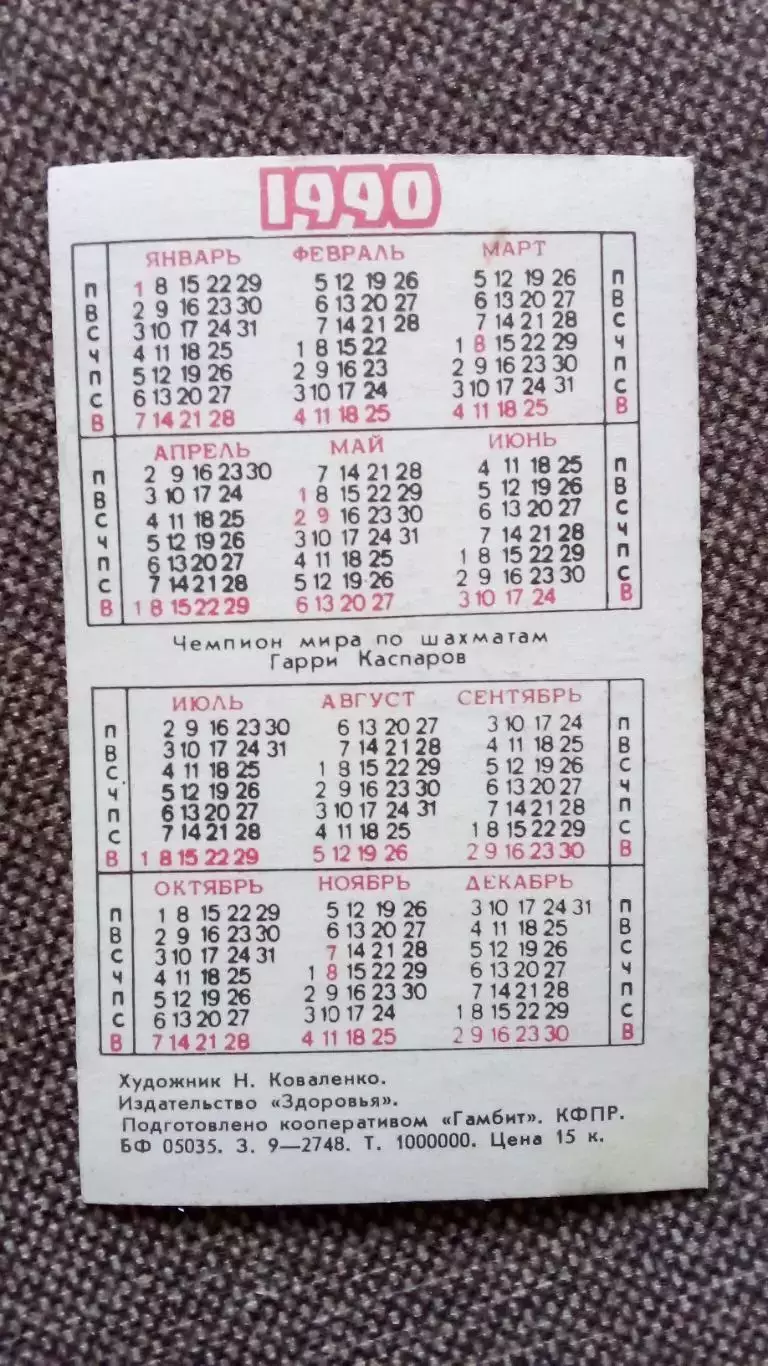 1990
ЯНВАРЬ ФЕВРАЛЬ МАРТ
П 1 8 15 22 29 5 12 19 26 5 12 19 26 П
В 2 9 16 23 30 6 13 20 27 6 13 20 27 В
С 3 10 17 24 31 7 14 21 28 7 14 21 28 С
Ч 4 11 18 25 1 8 15 22 1 8 15 22 29 Ч
П 5 12 19 26 2 9 16 23 2 9 16 23 30 П
С 6 13 20 27 3 10 17 24 3 10 17 24 31 С
В 7 14 21 28 4 11 18 25 4 11 18 25 В
АПРЕЛЬ МАЙ ИЮНЬ
П 2 9 16 23 30 7 14 21 28 4 11 18 25 П
В 3 10 17 24 1 8 15 22 29 5 12 19 26 В
С 4 11 18 25 2 9 16 23 30 6 13 20 27 С
Ч 5 12 19 26 3 10 17 24 31 7 14 21 28 Ч
П 6 13 20 27 4 11 18 25 1 8 15 22 29 П
С 7 14 21 28 5 12 19 26 2 9 16 23 30 С
В 1 8 15 22 29 6 13 20 27 3 10 17 24 В
Чемпион мира по шахматам
Гарри Каспаров
ИЮЛЬ АВГУСТ СЕНТЯБРЬ
П 2 9 16 23 30 6 13 20 27 3 10 17 24 П
В 3 10 17 24 31 7 14 21 28 4 11 18 25 В
С 4 11 18 25 1 8 15 22 29 5 12 19 26 С
Ч 5 12 19 26 2 9 16 23 30 6 13 20 27 Ч
П 6 13 20 27 3 10 17 24 31 7 14 21 28 П
С 7 14 21 28 4 11 18 25 1 8 15 22 29 С
В 1 8 15 22 29 5 12 19 26 2 9 16 23 30 В
ОКТЯБРЬ НОЯБРЬ ДЕКАБРЬ
П 1 8 15 22 29 5 12 19 26 3 10 17 24 31 П
В 2 9 16 23 30 6 13 20 27 4 11 18 25 В
С 3 10 17 24 31 7 14 21 28 5 12 19 26 С
Ч 4 11 18 25 1 8 15 22 29 6 13 20 27 Ч
П 5 12 19 26 2 9 16 23 30 7 14 21 28 П
С 6 13 20 27 3 10 17 24 1 8 15 22 29 С
В 7 14 21 28 4 11 18 25 2 9 16 23 30 В
Художник Н. Коваленко.
Издательство «Здоровья».
Подготовлено кооперативом «Гамбит». КФПР.
БФ 05035. З. 9—2748. Т. 1000000. Цена 15 к.